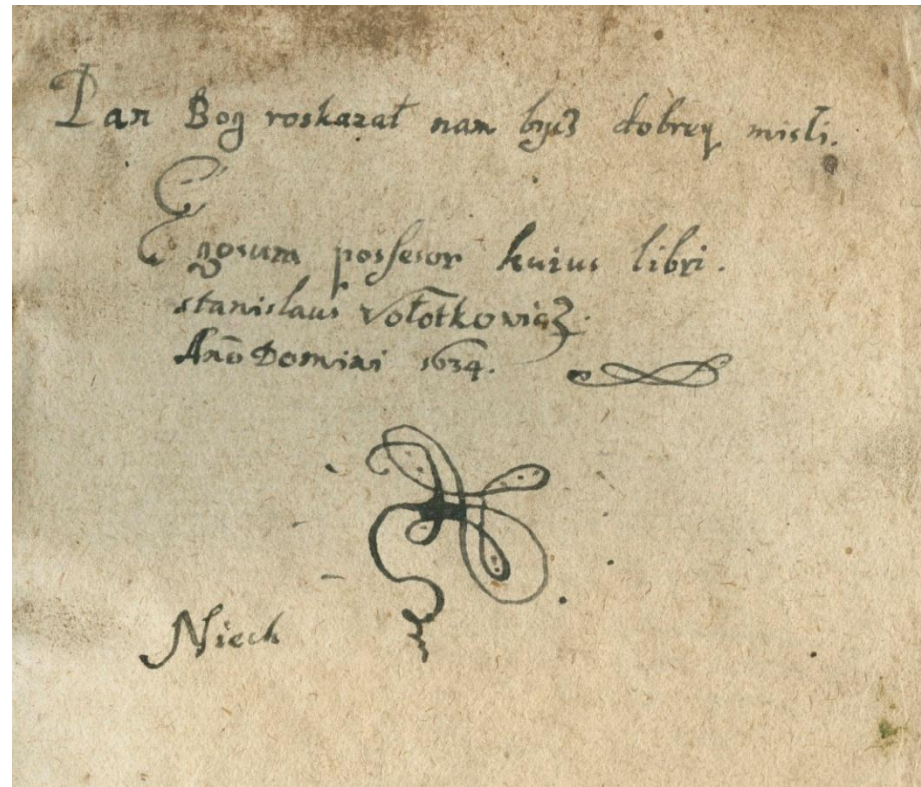 Pan Bog roskazał nam bycz dobrey misłi.
Egosum possesor huius libri.
stanislaus Vołotkowicz.
Año Domini 1634.
Niech